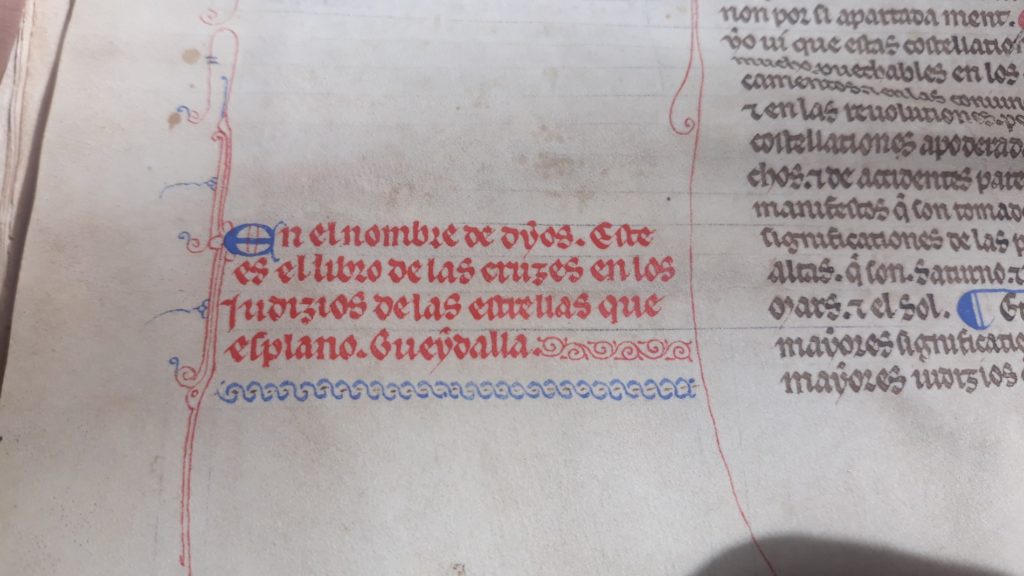 En el nombre de dẏos. Este
es el libro de las cruzes en los
Judizios de las estrellas que
esplano. Gueẏdalla.
non por si apartada ment.
ẏo ui que estas costellatio
mucho
en los
camientos
⁊ en las reuolutiones. pe
costellationes apoderad
chos. ⁊ de accidentes pare
manifestos q̃ son tomad
significationes de las p
altas. q̃ son. Saturno. ⁊
Mars. ⁊ el Sol. E
maẏores significatio
maẏores iudizios